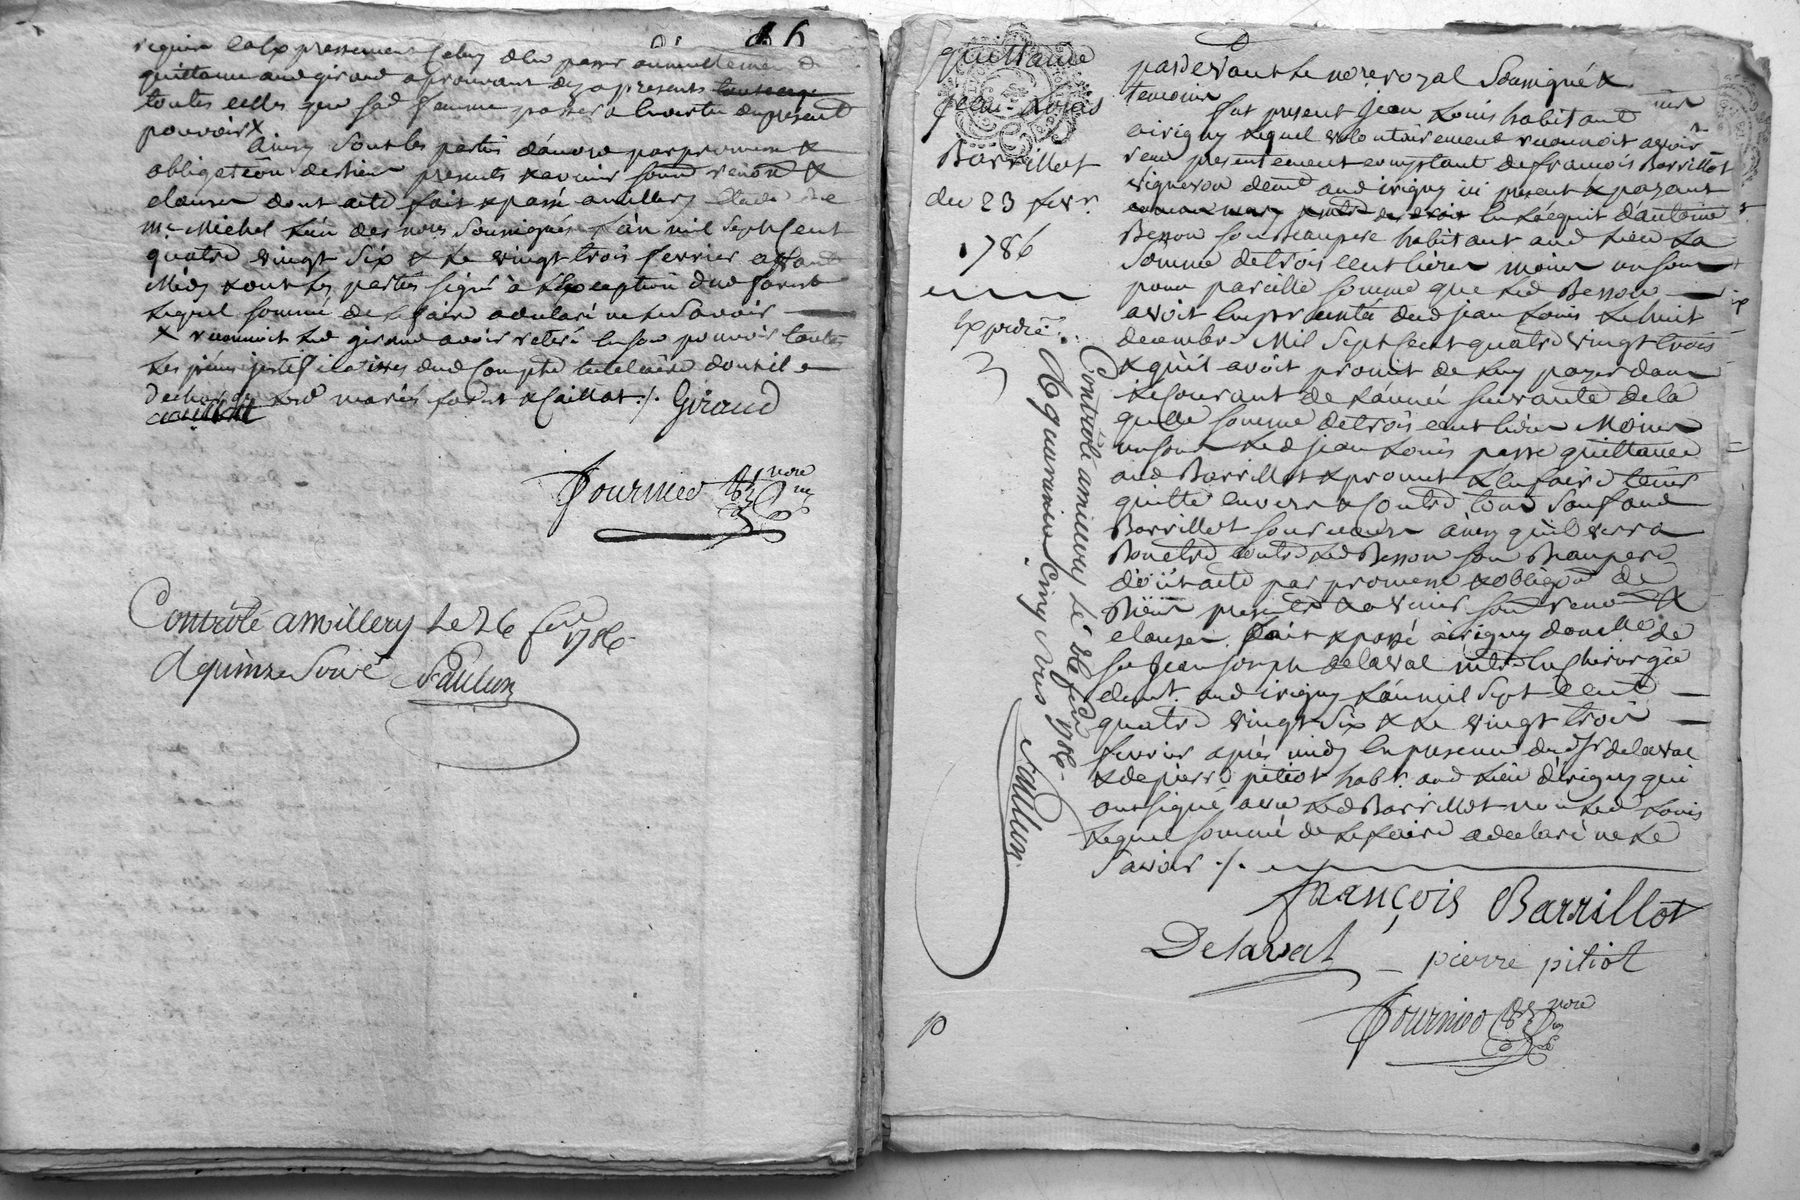 86
requise
quittance aud girard aprouvant des a presents
toutes celles que lad femme passera a la vertu du present
pouvoir x
ainsy sont les parties d'accord par promesse &
obligation de biens presents & avenir soum renon &
clauses dont acte fait & passé a millery étude de
Me Michel L'un des nores Soussignés L'an mil Sept Cent
quatre vingt Six & Le vingt trois fevrier avant
Midy & ont les parties signé à L'exception dud forest
Lequel sommé de le faire a déclaré ne le Savoir
x reconnoit Led girard avoir retiré en son pouvoir toutes
Les pièces justificatives dud Compte tutelaire dont il
décharge Led mariés forest & Caillot ./. Giraud
Fournier nore
Controlé a millery Le 26 fer
1786
A quinze Sous Saulun
quittance
jean Louis
Barrillot
du 23 fevr.
1786
Expédié
Controlé a millery Le 26 fer 1786
Saulun
pardevant Le nore royal Soussigné &
temoins
fut present Jean Louis habitant
a irigny Lequel volontairement reconnoit avoir
reçu presentement comptant de francois Barrillot
vigneron demt aud irigny ici present & payant
en L'acquit d'antoine
Besson son Beaupere habitant aud Lieu La
Somme de trois cent livres moins un sou
pour pareille somme que Led Besson
avoit Empruntée dud jean Louis Le huit
decembre Mil Sept Cent quatre vingt trois
& qu'il avoit promit de luy payer dans
Le Courant de L'année suivante de la
quelle somme de trois cent livres Moins
un sou Led jean Louis passe quittance
aud Barrillot & promet L'en faire tenir
quitte envers & Contre tous Sauf aud
Barrillot son recours ainsy qu'il verra
Bon etre contre Led Besson son Beaupere
dont acte par promesse & obligon de
Biens presents & avenir soum renon &
clauses fait & passé à irigny domicile de
sr Jean Joseph delaval me En Chirurgie
demt aud irigny L'an mil Sept Cent
quatre vingt Six & Le vingt trois
fevrier après midy En presence dud Sr delaval
& de pierre pitiot habt aud Lieu d'irigny qui
ont signé avec Led Barrillot non Led Louis
Lequel sommé de le faire a declaré ne Le
Savoir ./.
françois Barrillot
Delaval pierre pitiot
Fournier nore